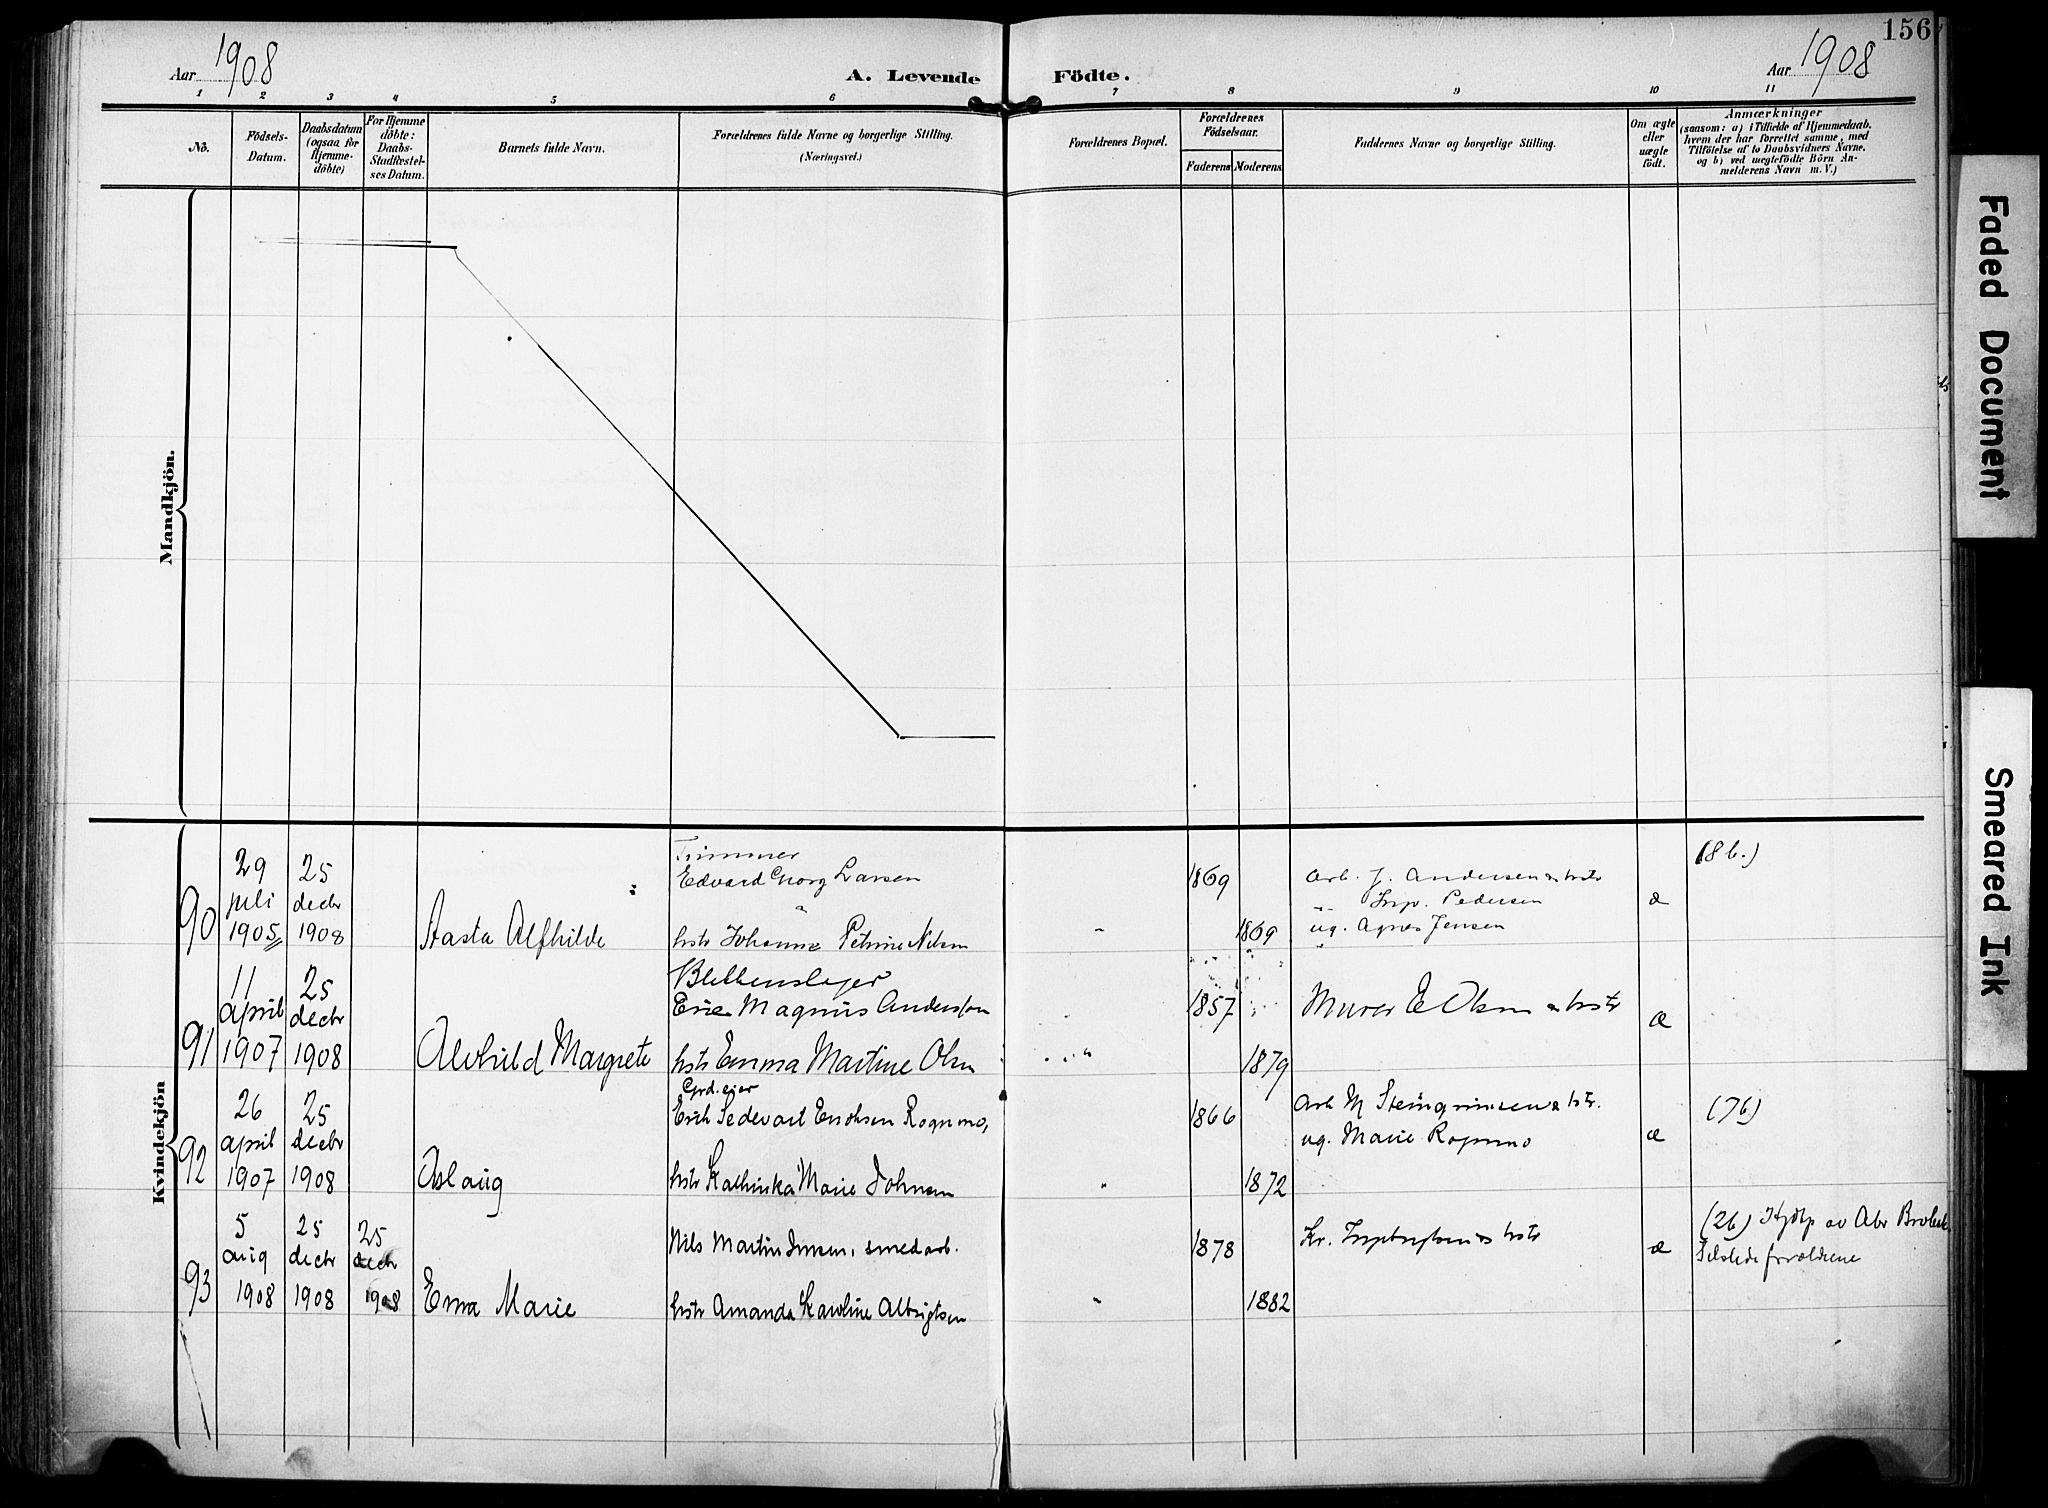 156
Aar 1908
A. Levende Födte.
Aar 1908
1 2 3 4 5 6 7 8 9 10 11
No.
Födsels-
Datum.
Daabsdatum
(ogsaa for
Hjemme-
döbte)
For Hjemme
döbte:
Daabs-
Stadfestel-
ses Datum.
Barnets fulde Navn.
Forældrenes fulde Navne og borgerlige Stilling.
(Næringsvei.)
Forældrenes Bopæl.
Forældrenes
Födselsaar.
Faderens Moderens
Faddernes Navne og borgerlige Stilling.
Om ægte
eller
uægte
födt.
Anmærkninger
(saasom: a) i Tilfælde af Hjemmedaab.
hvem der har forrettet samme, med
Tilföielse af to Daabsvidners Navne.
og b) ved uegtefödte Börn An-
melderens Navn m. V.)
Mandkjön.
Kvindekjön
90
29
juli
1905
25
decbr
1908
Aasta Alfhilde
Trimmer
Edvard Georg Larsen
hstr Johanna Petrine Nilsen
"
1869
1869
arb. J. Andersen & hstr
" Insp. Pedersen
ug. Agnes Jensen
æ
(8b.)
91
11
april
1907
25
decbr
1908
Alvhild Margrete
Blikkenslager
Eric Magnus Andersson
hstr Emma Martine Olsen
"
1857
1879
Murer E Olsen & hstr
æ
92
26
april
1907
25
decbr
1908
Aslaug
Grd.eier
Erik Sedevart Erichsen Rognmo,
hstr Kathinka Marie Johnsen
"
1866
1872
Arb M Steingrimsen & hstr.
ug. Marie Rognmo
æ
(7b)
93
5
aug
1908
25
decbr
1908
25
decbr
1908
Erna Marie
Nils Martin Jensen, smedarb.
hstr Amanda Karoline Albrigtsen
"
1878
1882
Kr. Ingebrigtsen & hstr
æ
(2b) Hjdbp av Abr
Tilstede forældrene
Faded Document
Smeared Ink